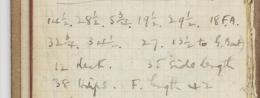 14½. 28½. 5¾. 19½. 29½. 18 FA.
32¾. 34½. 27. 13½ to G.
12 deck. 35 side length
38 hips. F. length 42